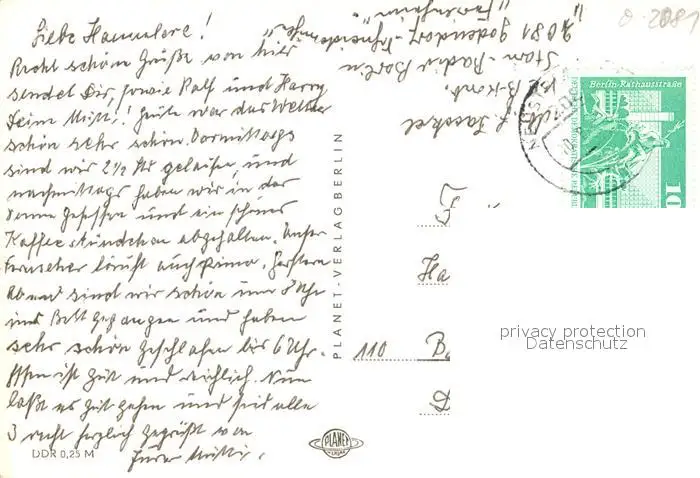 Liebe Hannelore!
Recht schöne Grüße von hier
sendet Dir, sowie Ralf und Harry
Deine Mutti! Heute war das Wetter
schön sehr schön. Vormittags
sind wir 2½ Std gelaufen, und
nachmittags haben wir in der
Sonne gesessen und ein schönes
Kaffeestündchen abgehalten. Unser
Fernseher läuft auch prima. Gestern
Abend sind wir schon um 8 Uhr
ins Bett gegangen und haben
sehr schön geschlafen bis 6 Uhr.
Essen ist gut und reichlich. Nun
laßt es gut gehen und seid alle
3 recht herzlich gegrüßt von
Eurer Mutti.
DDR 0,25 M
PLANET-VERLAG BERLIN
PLANET
2081 Godendorf
Stern-Radio Berlin
Berlin-Rathausstraße
10
110 B
Ha
D
privacy protection
Datenschutz